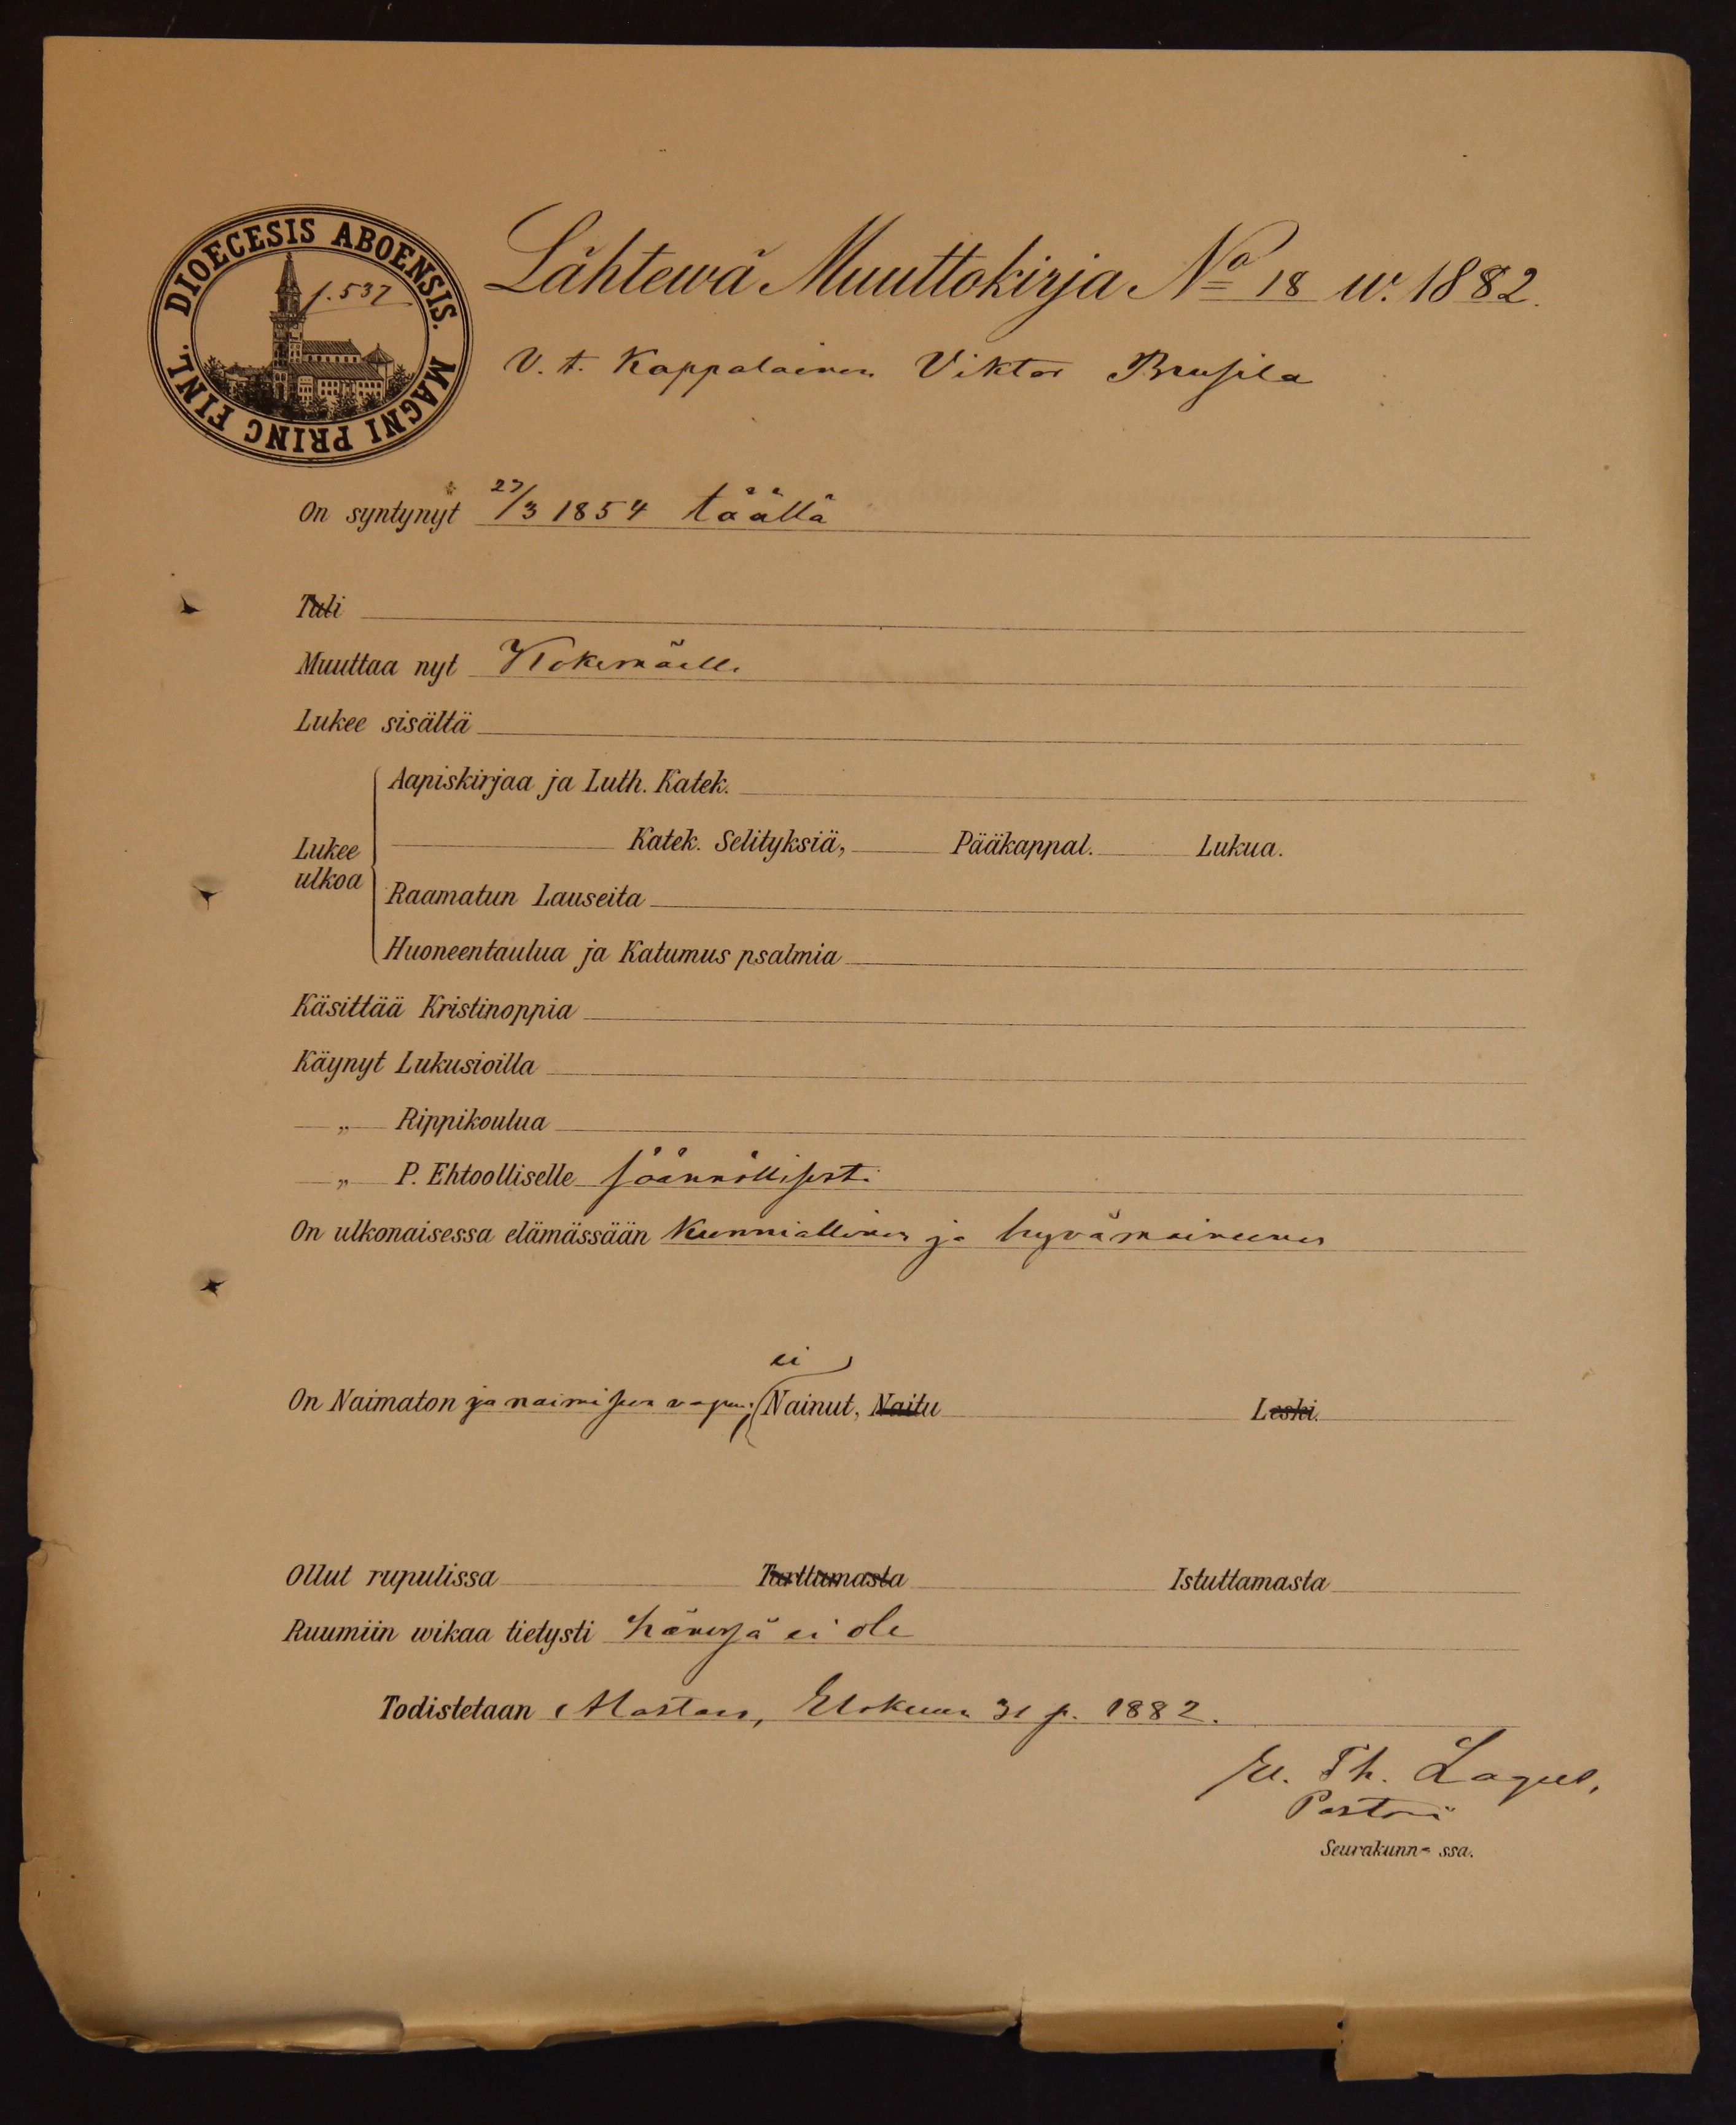 DIOECESIS ABOENSIS. MAGNI PRINC FINL.
f. 537
Lähtewä Muuttokirja No 18 w. 1882.
V. t. Kappalainen Viktor Brusila
On syntynyt 27/3 1854 täällä
Tuli
Muuttaa nyt Kokemäelle
Lukee sisältä
Aapiskirjaa ja Luth. Katek.
Lukee ulkoa
Katek. Selityksiä, Pääkappal. Lukua.
Raamatun Lauseita
Huoneentaulua ja Katumus psalmia
Käsittää Kristinoppia
Käynyt Lukusioilla
„ Rippikoulua
„ P. Ehtoolliselle säännöllisesti
On ulkonaisessa elämässään kunniallinen ja hyvämaineinen
ei
On Naimaton ja naimiseen vapaa; Nainut, Naitu Leski.
Ollut rupulissa Tarttumasta Istuttamasta
Ruumiin wikaa tietysti hänessä ei ole
Todistetaan Elokuun 31 p. 1882.
Th. Lagus,
Pastori
Seurakunn- ssa.